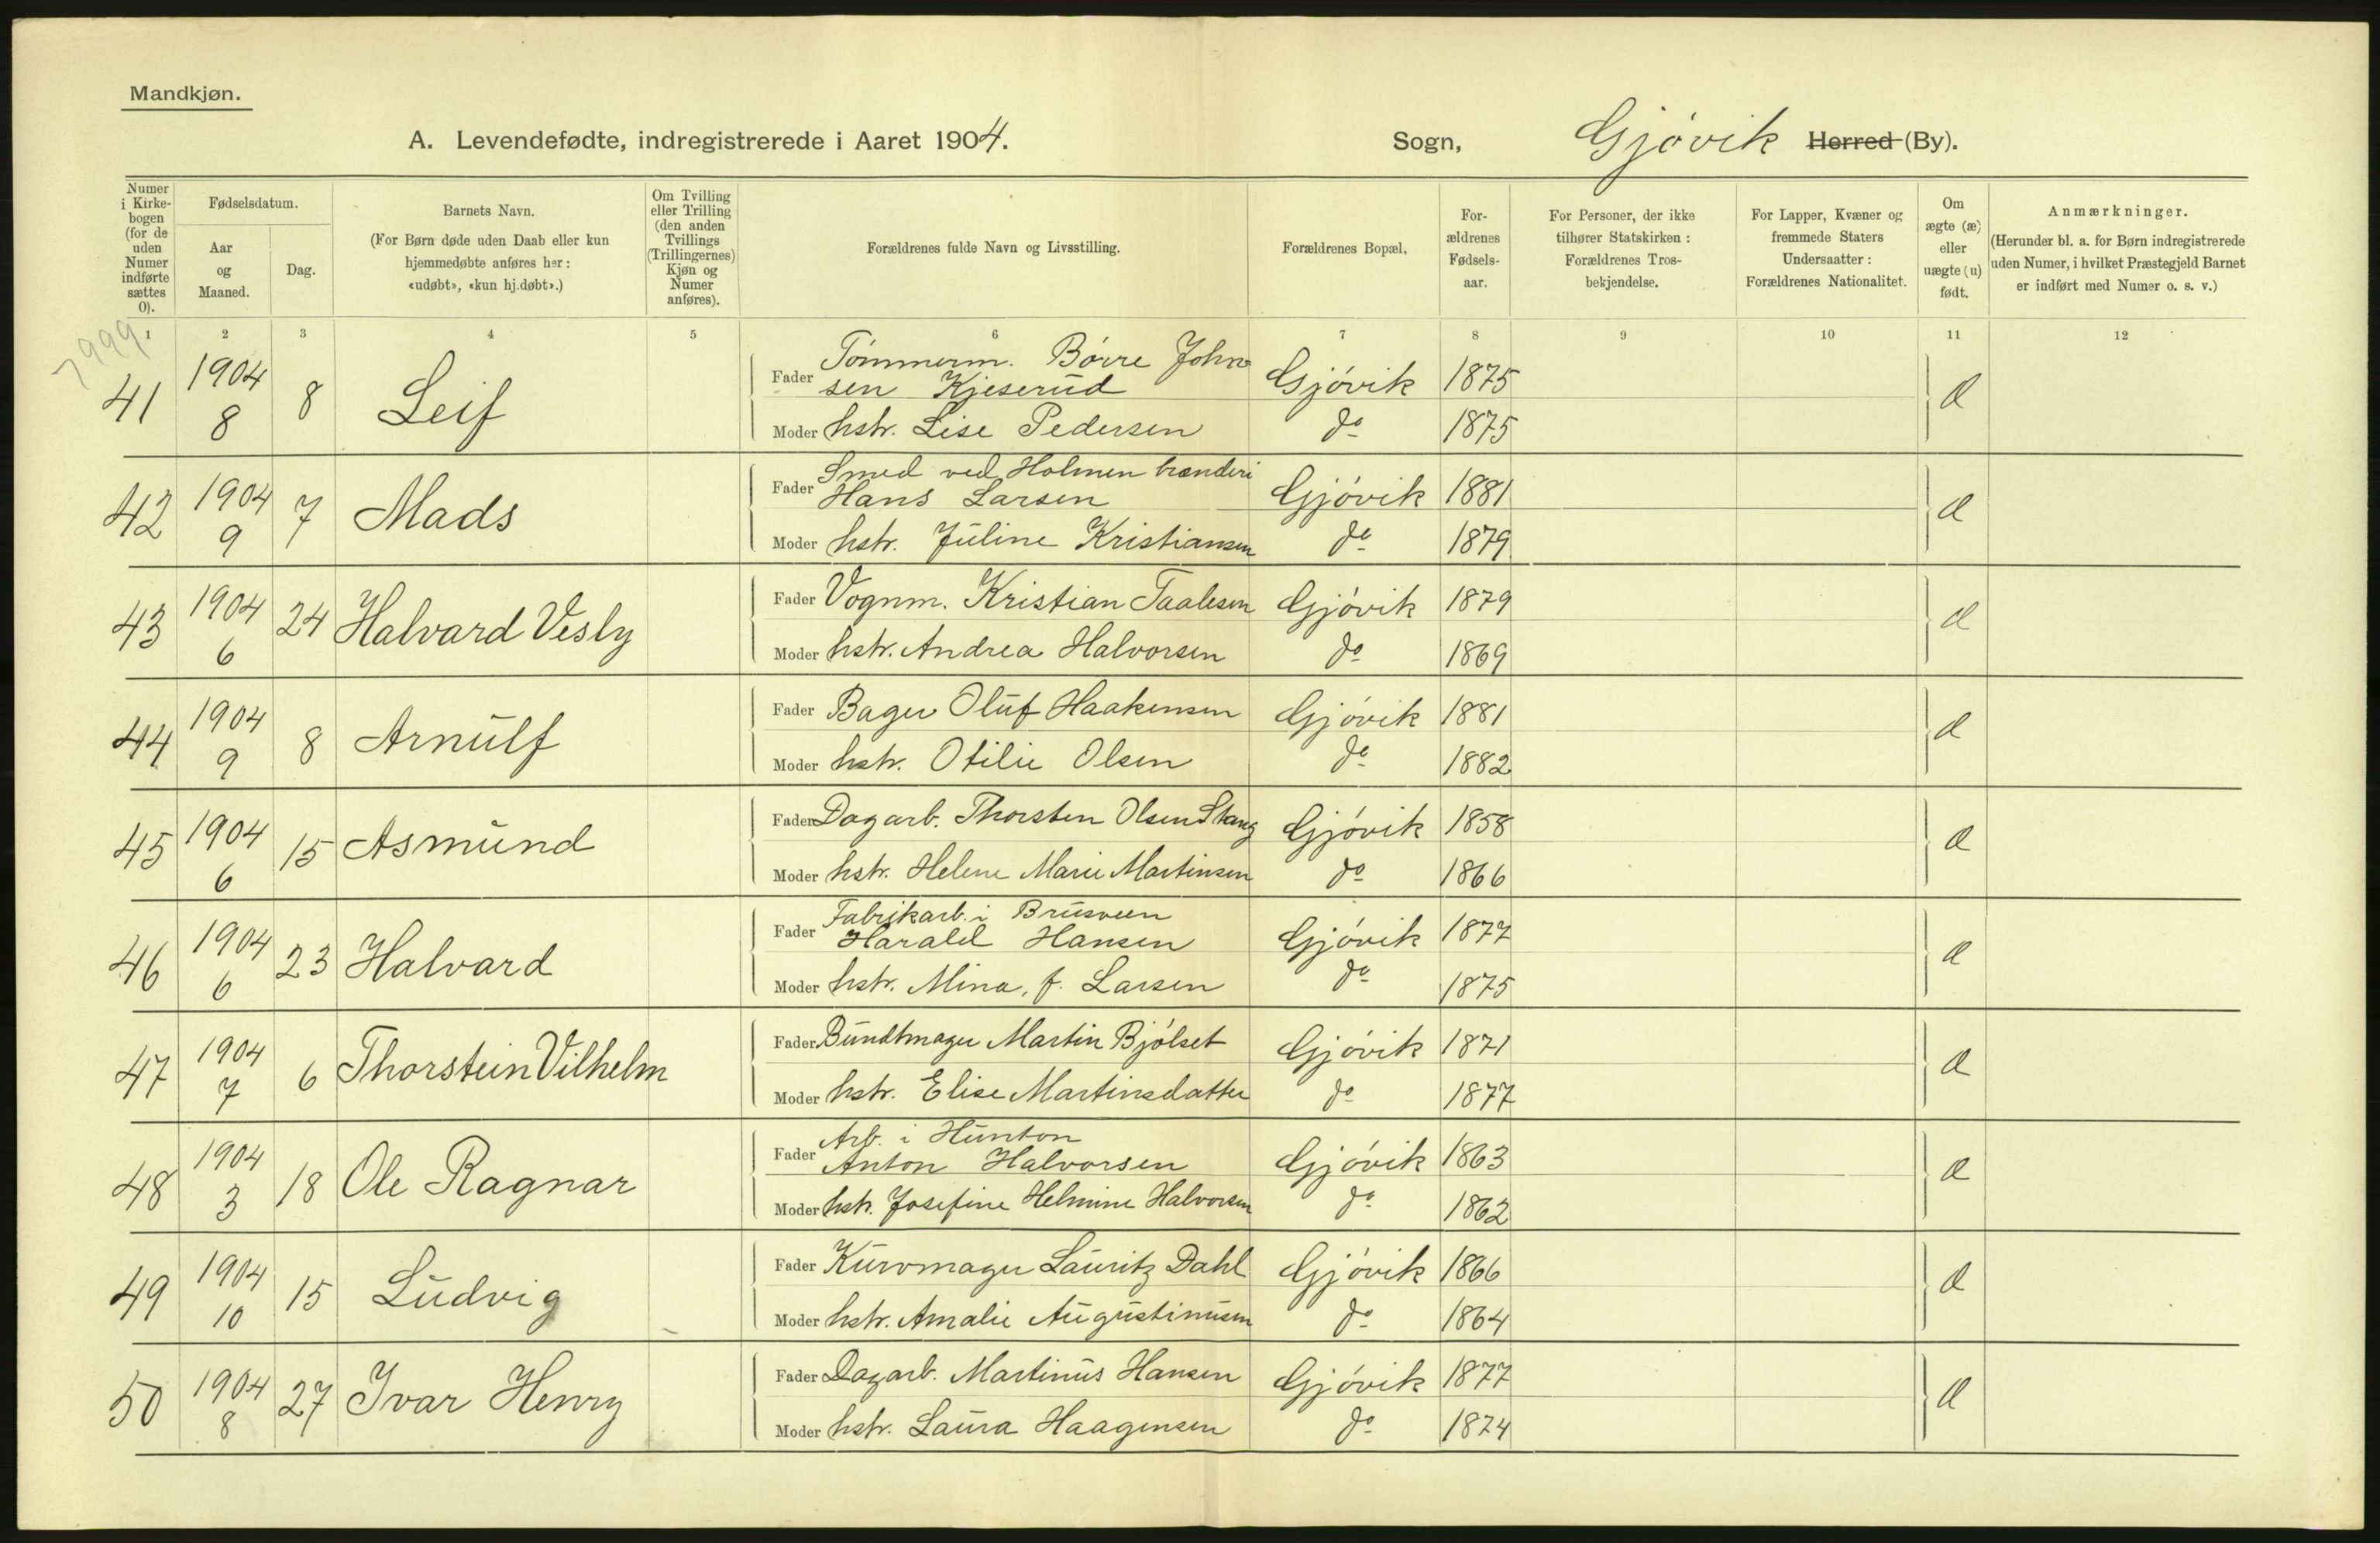 Mandkjøn.
A. Levendefødte, indregistrerede i Aaret 1904.
Sogn, Gjövik Herred (By).
Numer i Kirke-bogen (for de uden Numer indførte sættes 0).
Fødselsdatum.
Aar og Maaned.
Dag.
Barnets Navn.
(For Børn døde uden Daab eller kun hjemmedøbte anføres her: «udøbt», «kun hj.døbt».)
Om Tvilling eller Trilling (den anden Tvillings (Trillingernes) Kjøn og Numer anføres).
Forældrenes fulde Navn og Livsstilling.
Forældrenes Bopæl,
For-ældrenes Fødsels-aar.
For Personer, der ikke tilhører Statskirken: Forældrenes Tros-bekjendelse.
For Lapper, Kvæner og fremmede Staters Undersaatter: Forældrenes Nationalitet.
Om ægte (æ) eller uægte (u) født.
Anmærkninger.
(Herunder bl. a. for Børn indregistrerede uden Numer, i hvilket Præstegjeld Barnet er indført med Numer o. s. v.)
1 2 3 4 5 6 7 8 9 10 11 12
7999
41 1904 8 8 Leif
Fader Tömmerm. Börre John
sen Kjeserud Gjövik 1875 æ
Moder hstr. Lise Pedersen do 1875
42 1904 9 7 Mads
Fader Smed ved Holmen brænderi
Hans Larsen Gjövik 1881 æ
Moder hstr. Juline Kristiansen do 1879
43 1904 6 24 Halvard Vesly
Fader Vognm. Kristian Taalesen Gjövik 1879 æ
Moder hstr. Andrea Halvorsen do 1869
44 1904 9 8 Arnulf
Fader Bager Oluf Haakensen Gjövik 1881 æ
Moder hstr. Otilie Olsen do 1882
45 1904 6 15 Asmund
Fader Dagarb. Thorsten Olsen Stang Gjövik 1858 æ
Moder hstr. Helene Marie Martinsen do 1866
46 1904 6 23 Halvard
Fader Fabrikarb. i Brusveen
Harald Hansen Gjövik 1877 æ
Moder hstr. Mina, f. Larsen do 1875
47 1904 7 6 Thorstein Vilhelm
Fader Bundtmager Martin Bjölset Gjövik 1871 æ
Moder hstr. Elise Martinsdatter do 1877
48 1904 3 18 Ole Ragnar
Fader Arb. i Hunton
Anton Halvorsen Gjövik 1863 æ
Moder hstr. Josefine Helmine Halvorsen do 1862
49 1904 10 15 Ludvig
Fader Kurvmager Lauritz Dahl Gjövik 1866 æ
Moder hstr. Amalie Augustinusen do 1864
50 1904 8 27 Ivar Henry
Fader Dagarb. Martinus Hansen Gjövik 1877 æ
Moder hstr. Laura Haagensen do 1874